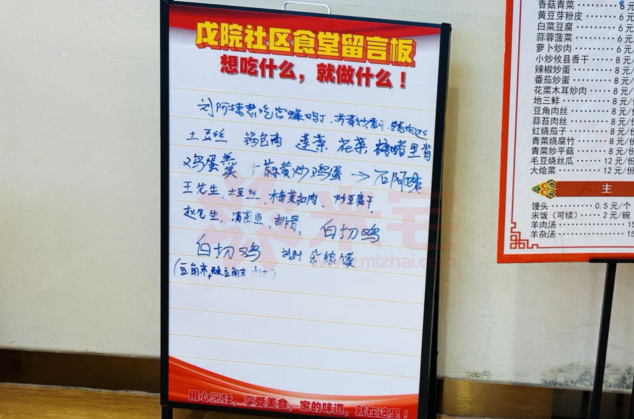 戊院社区食堂留言板
想吃什么，就做什么！
土豆丝 锅包肉 莲菜 花菜 糖醋里脊
鸡蛋羹 + 蒜黄炒鸡蛋
王先生 土豆丝，梅菜扣肉，炒豆腐干
赵先生，清蒸鱼，排骨，白切鸡
白切鸡
用心烹饪、享受美食，家的味道，就在这里！
香菇青菜 8元
黄豆芽粉皮 6元
白菜豆腐 6元
蒜蓉菠菜 6元
萝卜炒肉
小炒攸县香干 8元
辣椒炒蛋 8元
番茄炒蛋 8元
花菜木耳炒肉 8元
地三鲜 8元
豆角肉丝 8元
蒜苔肉丝 8元
红烧茄子 8元/
青菜烧腐竹 8元/
青菜炒平菇 8元/
毛豆烧丝瓜 12元/
大烩菜 12元/份
主
馒头 0.5元/个
米饭（可续） 2元/碗
羊肉汤 15
羊杂汤 15
www.mizhai.com